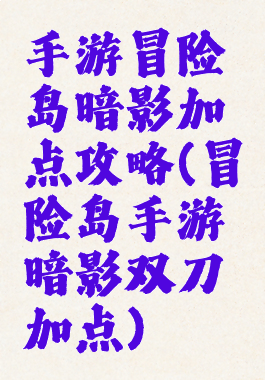 手游冒险
岛暗影加
点攻略(冒
险岛手游
暗影双刀
加点)